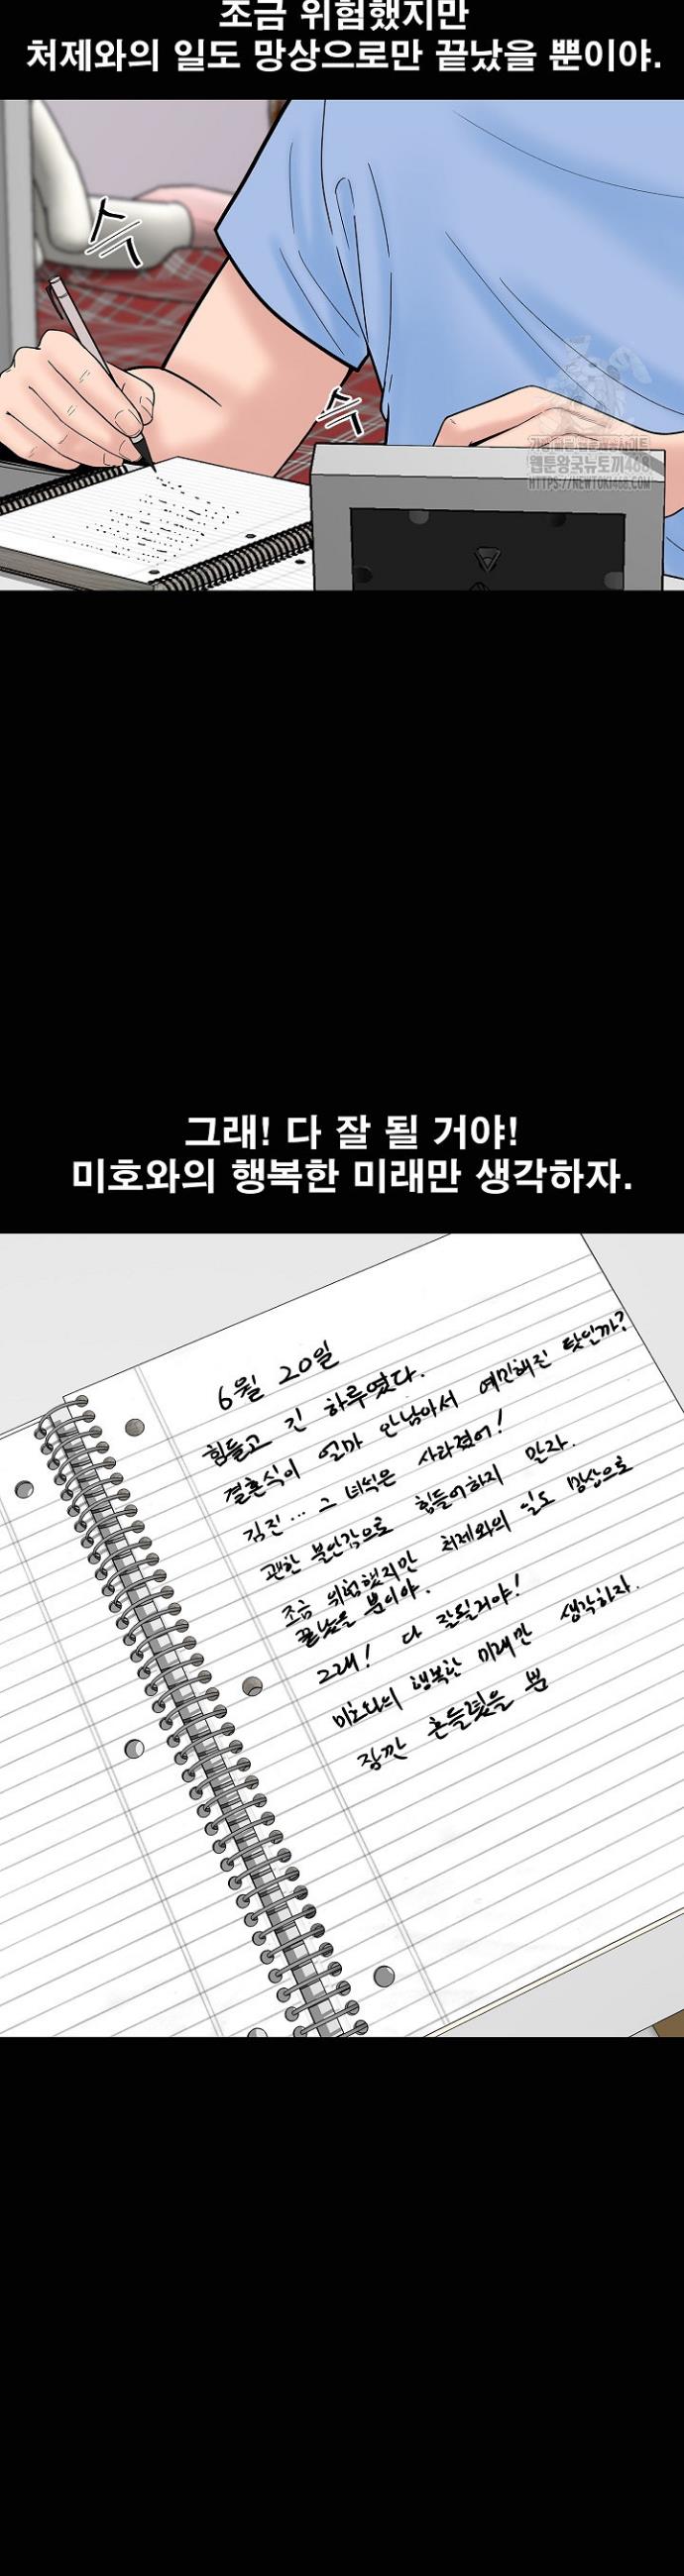 조금 위험했지만
처제와의 일도 망상으로만 끝났을 뿐이야.
스윽
스윽
웹툰왕국뉴토끼468
HTTPS://NEWTOKI468.COM
그래! 다 잘 될 거야!
미호와의 행복한 미래만 생각하자.
6월 20일
힘들고 긴 하루였다.
결혼식이 얼마 안남아서 예민해진 탓인가?
김진... 그 녀석은 사라졌어!
괜한 불안감으로 힘들어하지 말자.
조금 위험했지만 처제와의 일도 망상으로
끝났을 뿐이야.
그래! 다 잘될거야!
미호와의 행복한 미래만 생각하자.
잠깐 흔들렸을 뿐